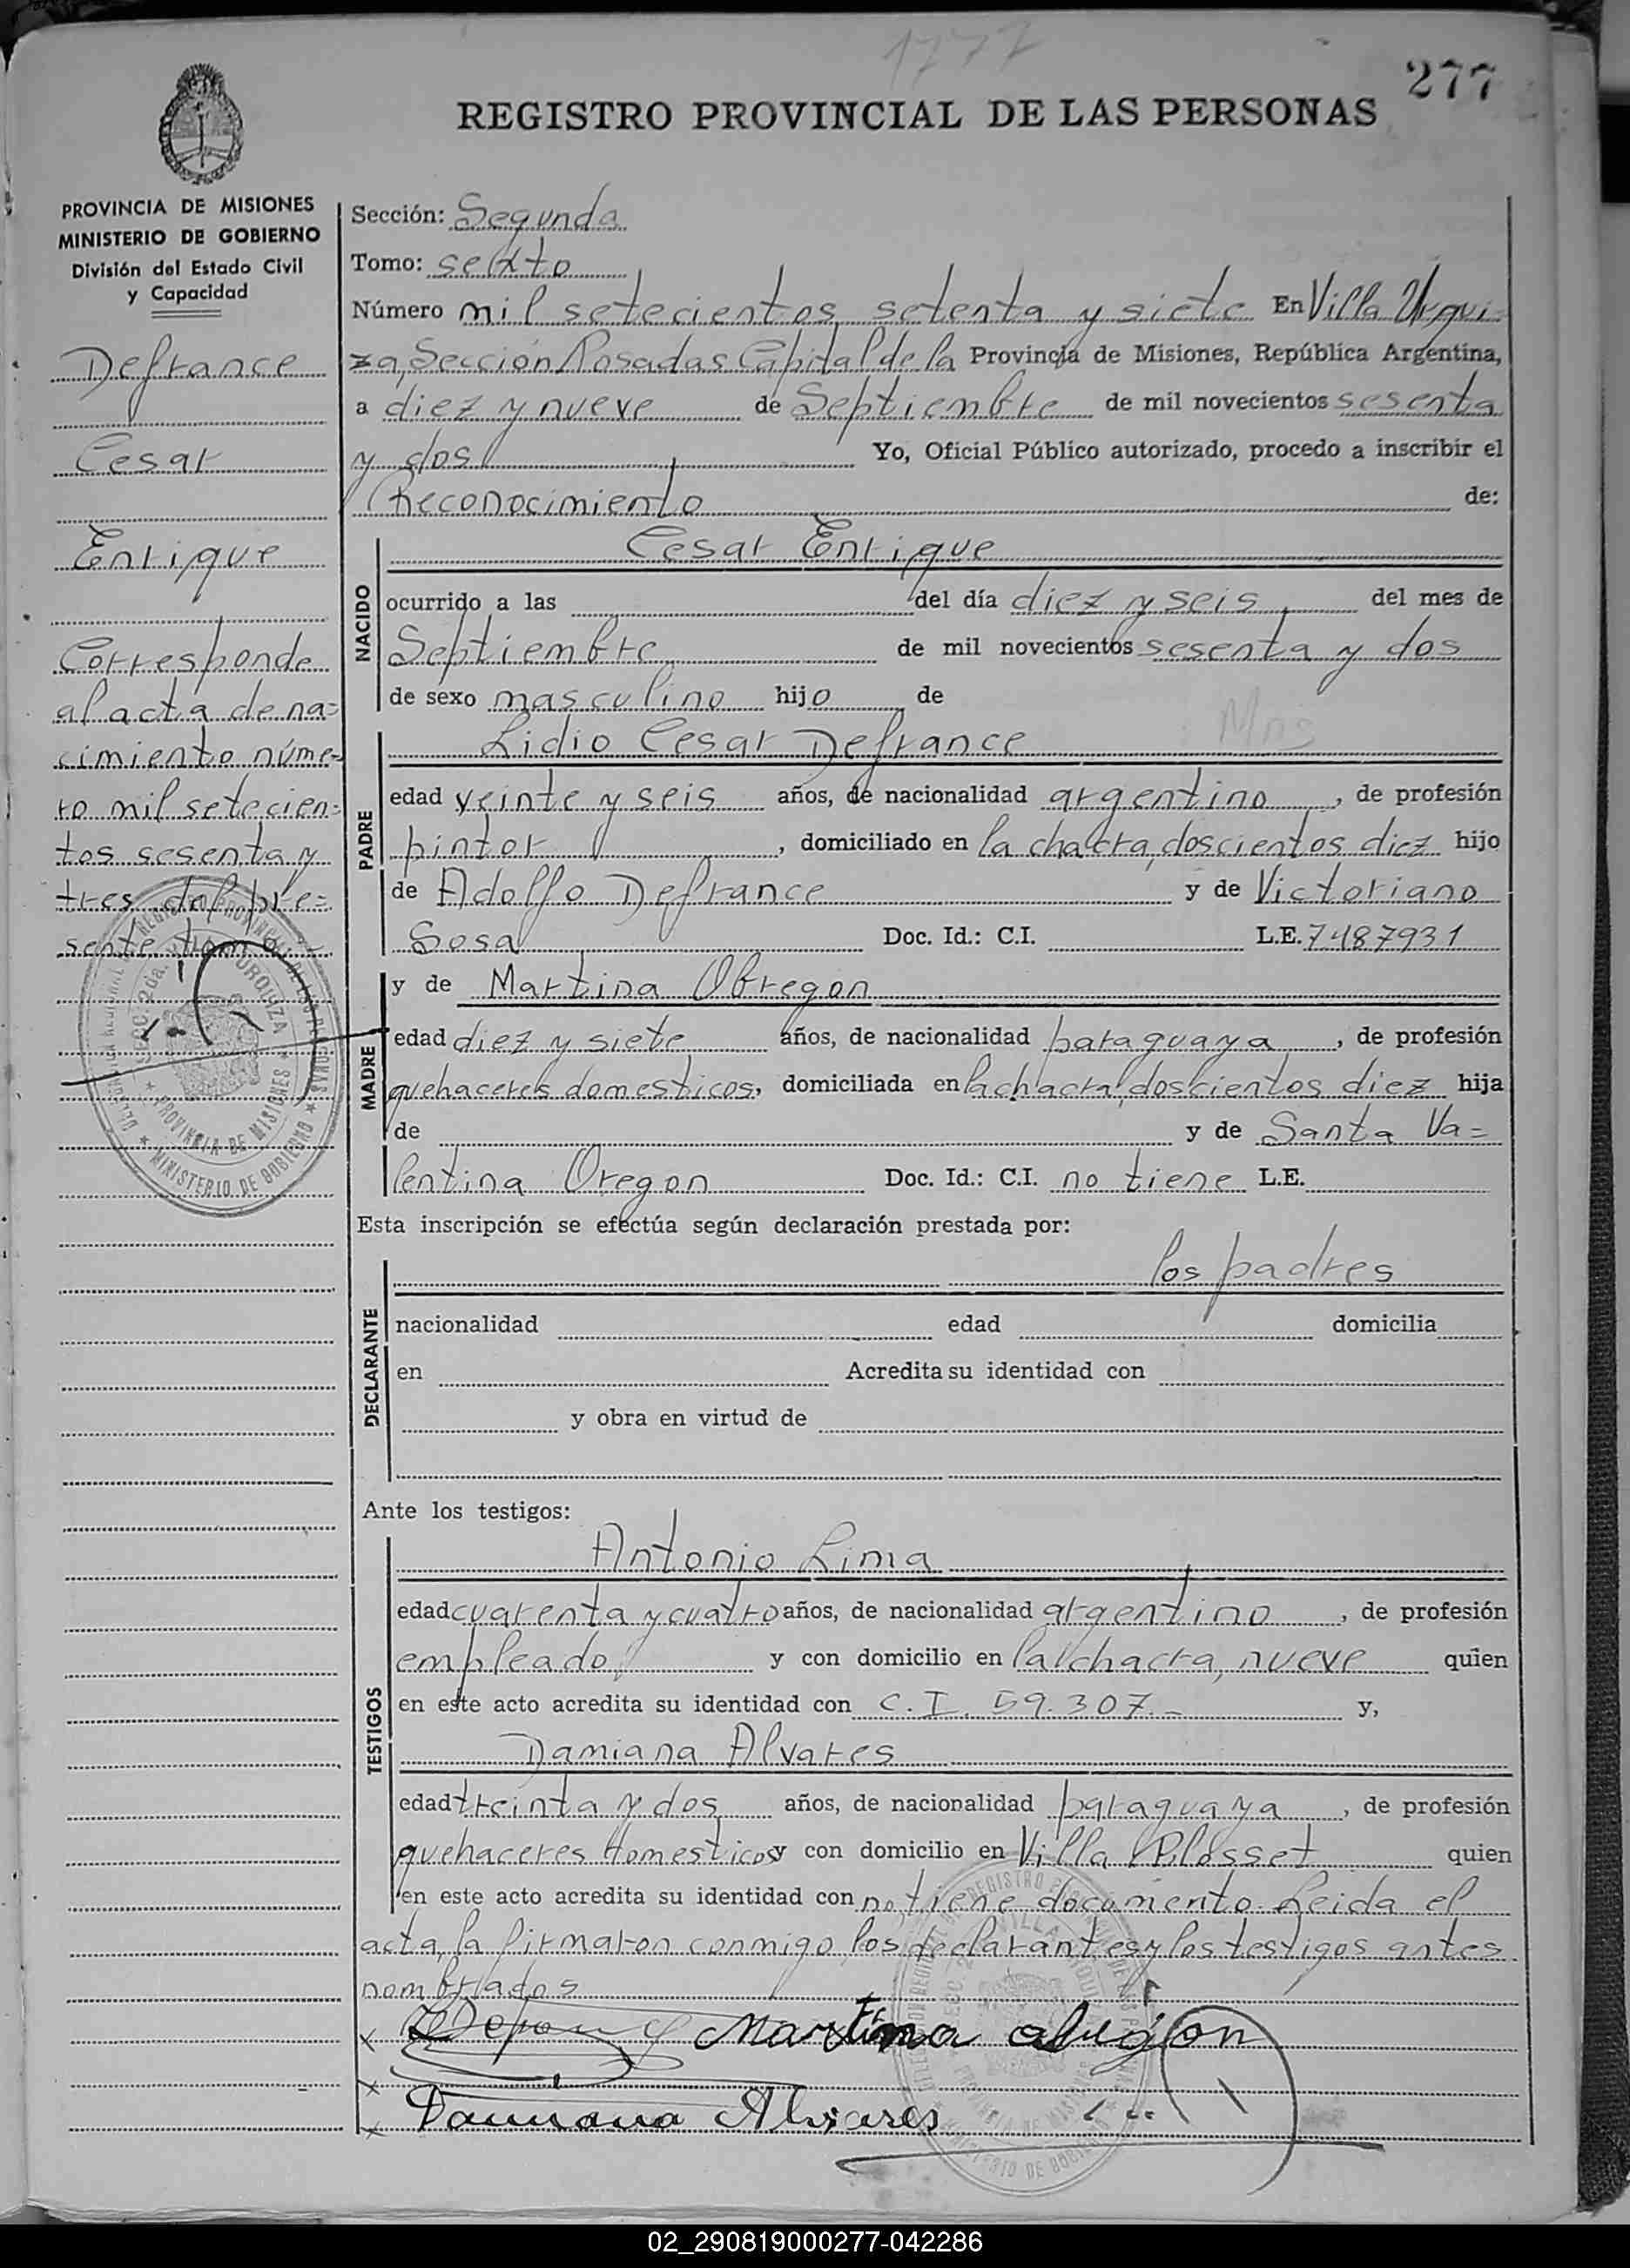 1777
277
REGISTRO PROVINCIAL DE LAS PERSONAS
PROVINCIA DE MISIONES
MINISTERIO DE GOBIERNO
División del Estado Civil
y Capacidad
Defrance
Cesar
Enrique
Corresponde
al acta de na=
cimiento núme=
ro mil setecien=
tos sesenta y
tres del pre=
sente tomo
Sección: Segunda
Tomo: sexto
Número mil setecientos setenta y siete En Villa Urqui
za, Sección Posadas Capital de la Provincia de Misiones, República Argentina,
a diez y nueve de Septiembre de mil novecientos sesenta
y dos Yo, Oficial Público autorizado, procedo a inscribir el
Reconocimiento de:
NACIDO
Cesar Enrique
ocurrido a las del día diez y seis del mes de
Septiembre de mil novecientos sesenta y dos
de sexo masculino hijo de
PADRE
Lidio Cesar Defrance
edad veinte y seis años, de nacionalidad argentino, de profesión
pintor, domiciliado en la chacra doscientos diez hijo
de Adolfo Defrance y de Victoriano
Sosa Doc. Id.: C.I. L.E. 7487931
MADRE
y de Martina Obregon
edad diez y siete años, de nacionalidad paraguaya, de profesión
quehaceres domesticos, domiciliada en la chacra doscientos diez hija
de y de Santa Va=
lentina Oregon Doc. Id.: C.I. no tiene L.E.
Esta inscripción se efectúa según declaración prestada por:
DECLARANTE
los padres
nacionalidad edad domicilia
en Acredita su identidad con
y obra en virtud de
Ante los testigos:
TESTIGOS
Antonio Lima
edad cuarenta y cuatro años, de nacionalidad argentino, de profesión
empleado y con domicilio en la chacra, nueve quien
en este acto acredita su identidad con C.I. 59.307.- y,
Damiana Alvares
edad treinta y dos años, de nacionalidad paraguaya, de profesión
quehaceres domesticos y con domicilio en Villa Blosset quien
en este acto acredita su identidad con no tiene documento. Leida el
acta, la firmaron conmigo, los declarantes y los testigos antes
nombrados
Martina
Damiana Alvares
02_290819000277-042286